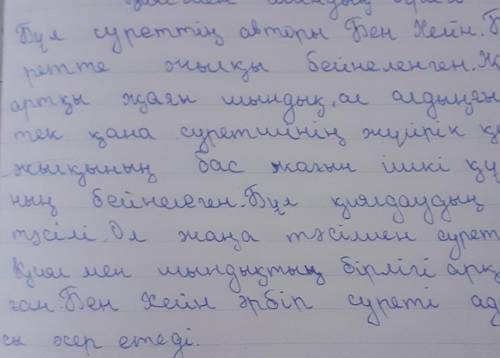 шындық
Бұл суреттің авторы Бен Хейн. Б
ретте жылқы бейнеленген. Ж
артқы жағын шындық, ал алдыңғы
тек қана суретшінің жүйрік қ
жылқының бас жағын ішкі құ
ның бейнелеген. Бұл қиялдаудың
тәсілі. Ол жаңа тәсілмен сурет
Қиял мен шындықтың бірлігі арқ
ған. Бен Хейн әрбір суреті ад
сы әсер етеді.